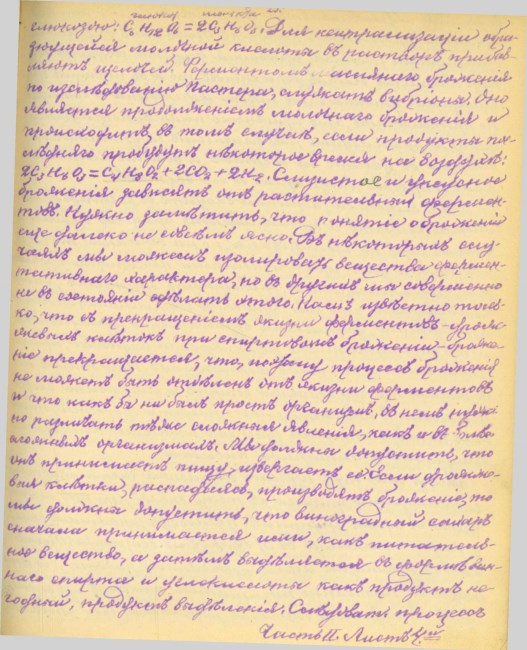 глюкоза молочн. к.
глюкозою: C₆H₁₂O₆ = 2C₃H₆O₃. Для нейтрализаціи обра-
зующейся молочной кислоты въ растворъ прибав-
ляютъ щелочей. Ферментомъ маслянаго броженія
по изслѣдованію Пастера, служатъ вибріоны. Оно
является продолженіемъ молочнаго броженія и
происходитъ въ томъ случаѣ, если продукты по-
слѣдняго пробудутъ нѣкоторое время на воздухѣ:
2C₃H₆O₃ = C₄H₈O₂ + 2CO₂ + 2H₂. Слизистое и уксусное
броженія зависятъ отъ растительныхъ фермен-
товъ. Нужно замѣтить, что понятіе о броженіи
еще далеко не совсѣмъ ясно. Въ нѣкоторыхъ слу-
чаяхъ мы можемъ изолировать вещества фермен-
тативнаго характера, но въ другихъ мы совершенно
не въ состояніи сдѣлать этого. Намъ извѣстно толь-
ко, что съ прекращеніемъ жизни ферментовъ - дрож-
жевыхъ клѣтокъ при спиртовомъ броженіи - броже-
ніе прекращается, что, поэтому процессъ броженія
не можетъ быть отдѣленъ отъ жизни ферментовъ
и что какъ бы не былъ простъ организмъ, въ немъ нужно
но различать тѣже сложныя явленія, какъ и въ
организмахъ. Мы должны допустить, что
онъ принимаетъ пищу, извергаетъ Если дрожже-
выя клѣтки, распадаясь, производятъ броженіе, то
мы должны допустить, что виноградный сахаръ
сначала принимается ими, какъ питатель-
ное вещество, а затѣмъ выдѣляется въ формѣ вин-
наго спирта и углекислоты какъ продуктъ не-
годный, продуктъ выдѣленія. процессъ
Часть II. Листъ 4ый